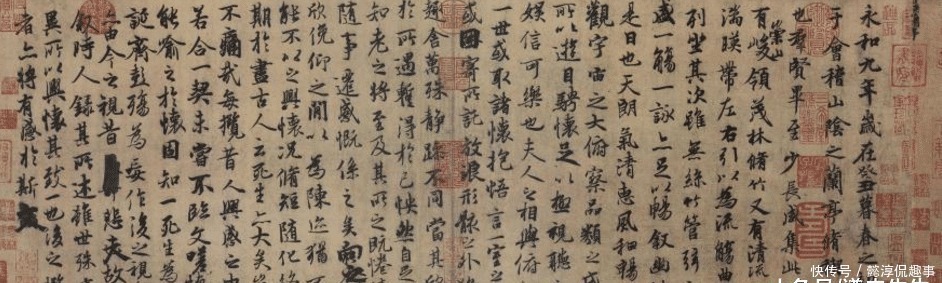 永和九年歲在癸丑暮春之
于會稽山陰之蘭亭脩禊
也羣賢畢至少長咸集此
有崇山峻領茂林脩竹又有清流
湍暎帶左右引以為流觴曲
列坐其次雖無絲竹管弦
盛一觴一詠亦足以暢敘幽
是日也天朗氣清惠風和暢
觀宇宙之大俯察品類之盛
所以遊目騁懷足以極視聽
娛信可樂也夫人之相與俯
一世或取諸懷抱悟言一室之
或因寄所託放浪形骸之外
趣舍萬殊靜躁不同當其欣
於所遇暫得於己怏然自足
知老之將至及其所之既惓
隨事遷感慨係之矣向之
欣俛仰之閒以為陳迹猶不
能不以之興懷況脩短隨化終
期於盡古人云死生亦大矣
不痛哉每攬昔人興感之由
若合一契未嘗不臨文嗟
能喻之於懷固知一死生為
誕齊彭殤為妄作後之視
亦由今之視昔悲夫故
敘時人錄其所述雖世殊
異所以興懷其致一也後之攬
者亦將有感於斯文
快传号 / 懿淳侃趣事